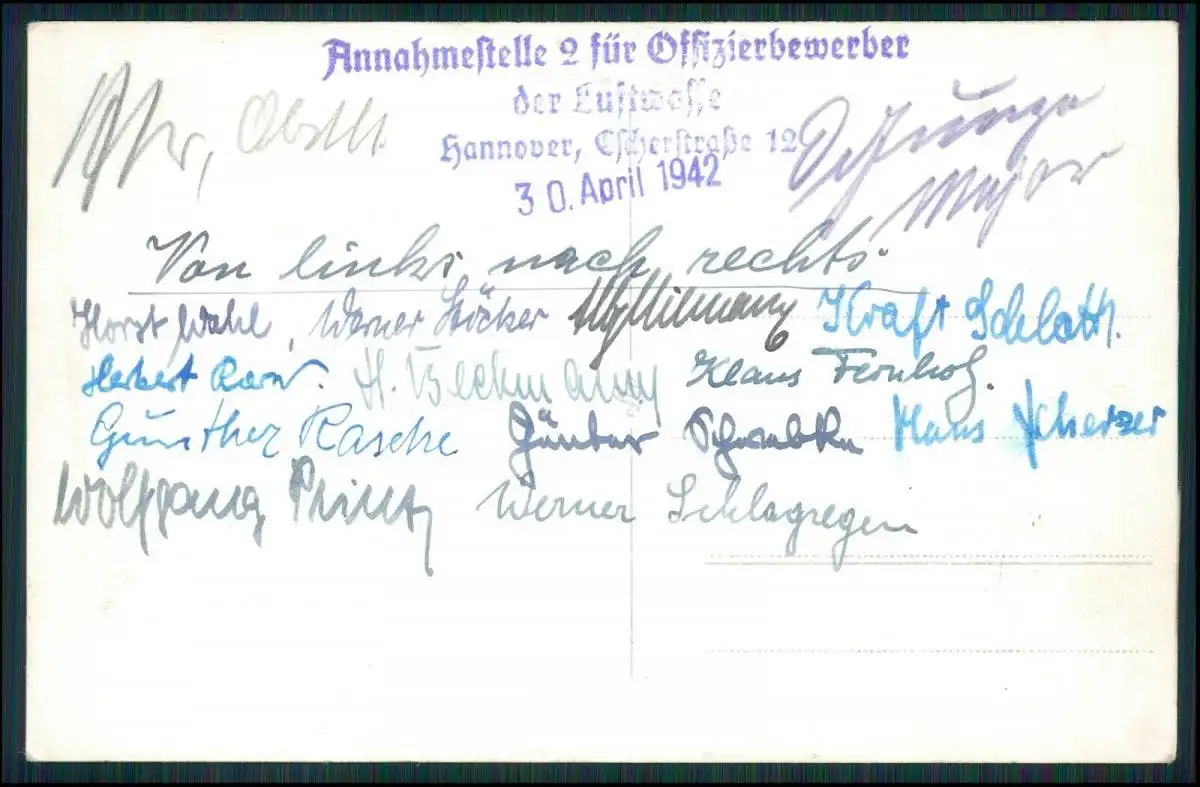 Annahmestelle 2 für Offizierbewerber
der Luftwaffe
Hannover, Escherstraße 12
30. April 1942
Obstlt
Major
Von links nach rechts.
Horst Wahl, Werner Höcker Kraft Schlott.
Herbert H. Beckmann Klaus Fernholz.
Günther Rasche Günter Schwabke Hans Scherzer
Wolfgang Printz Werner Schlagregen